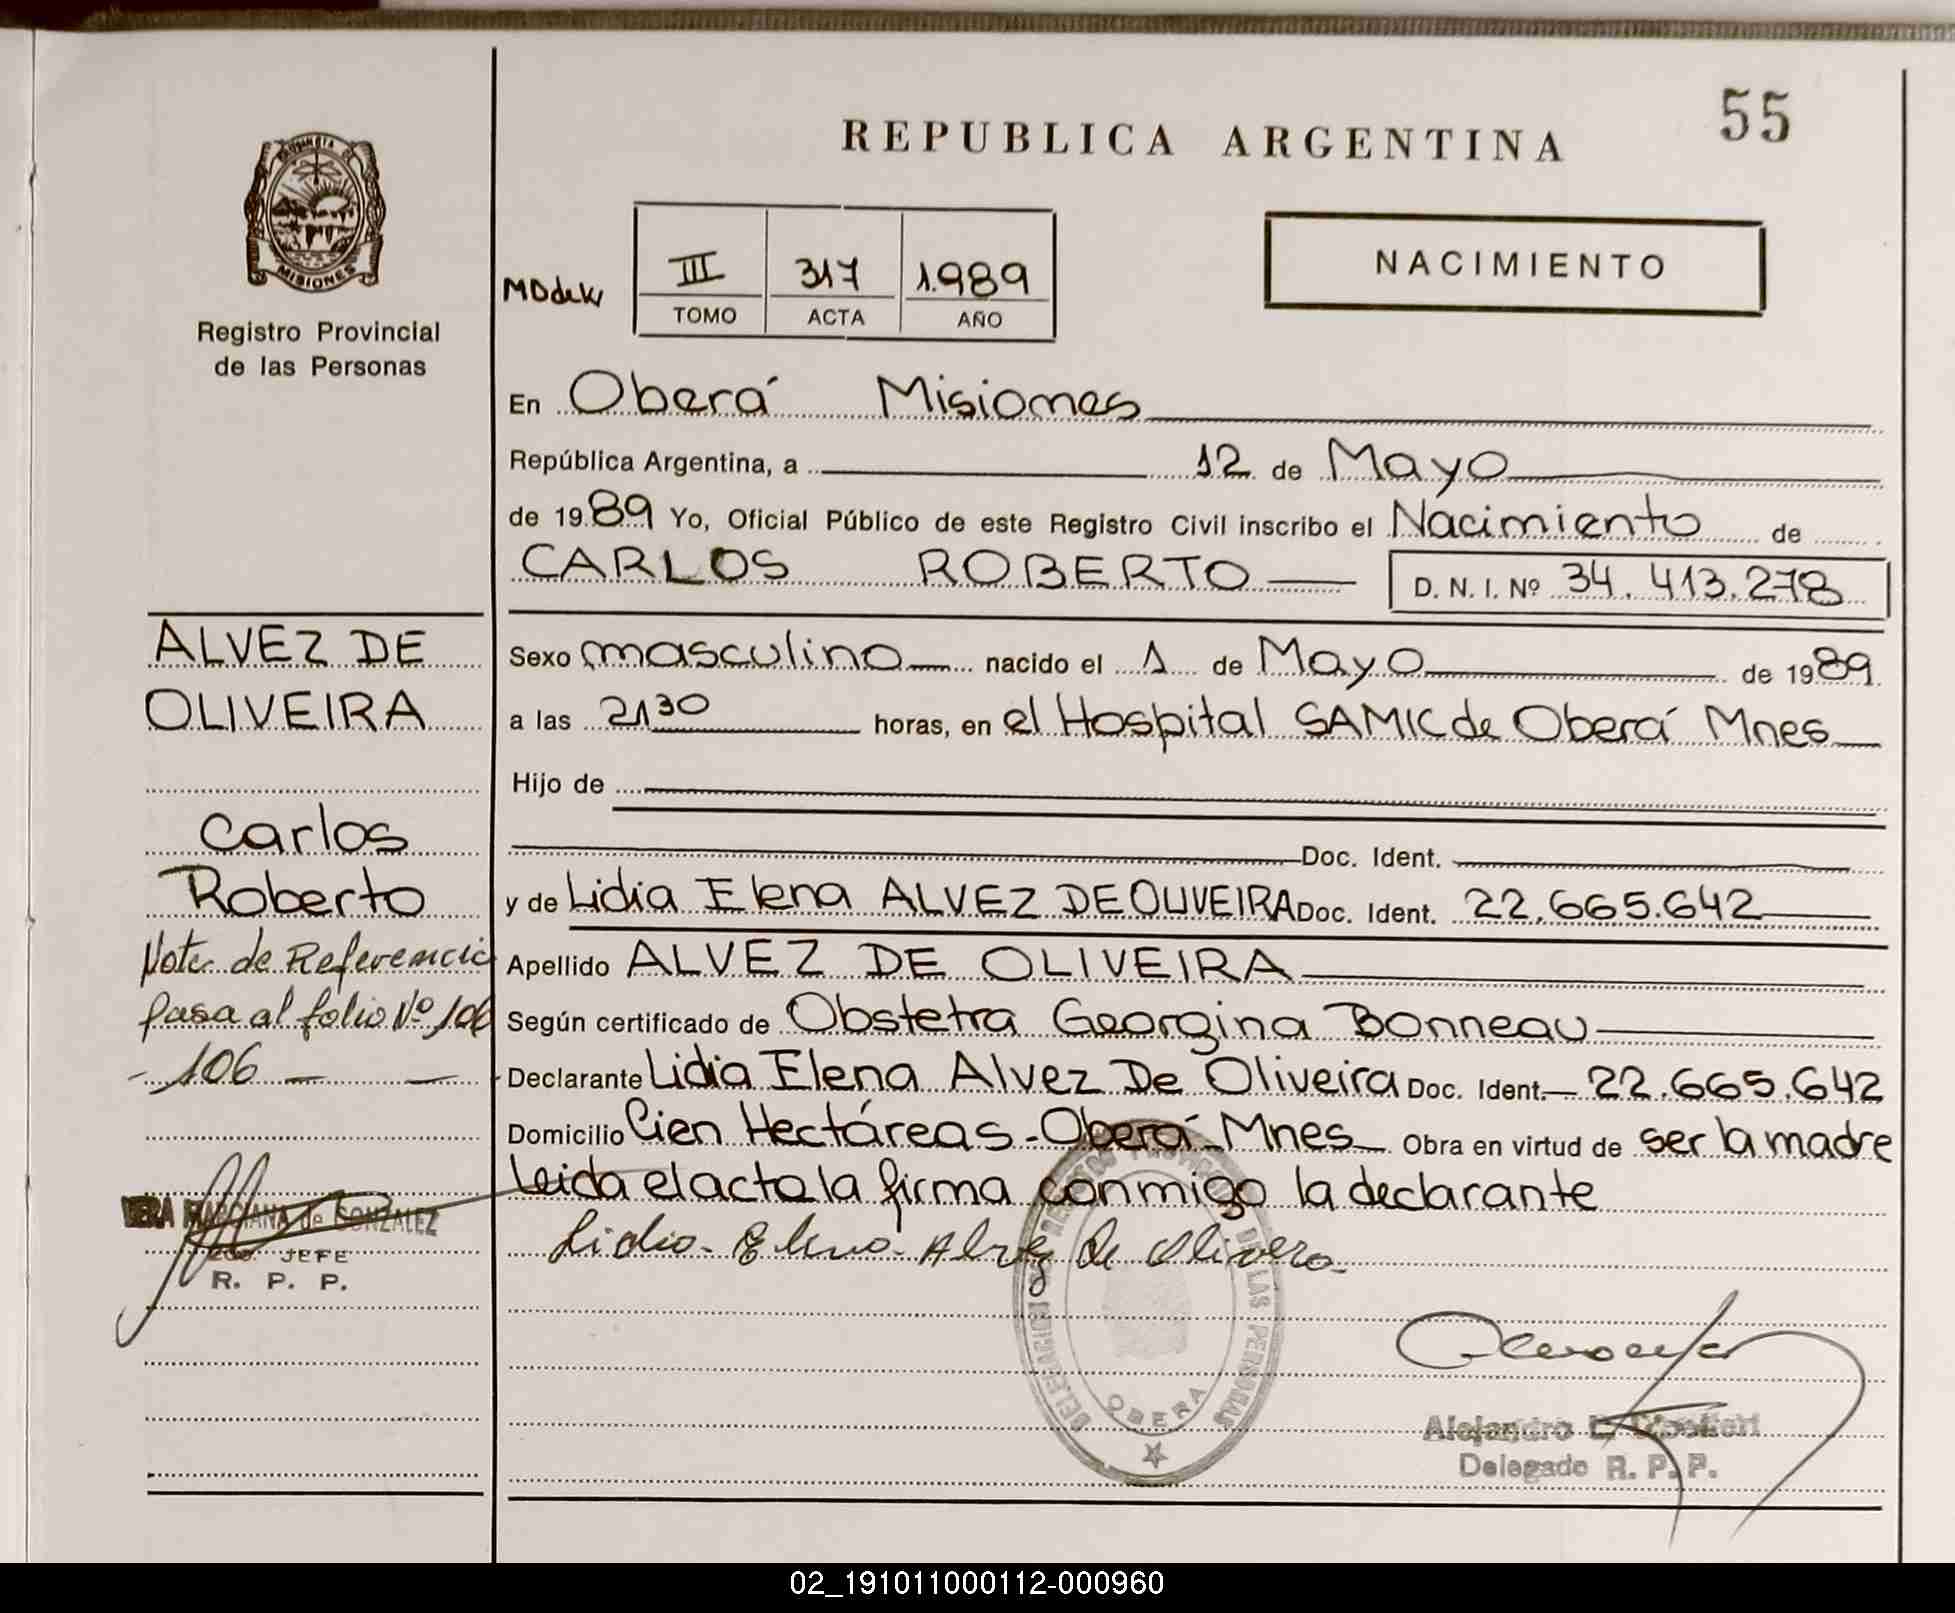 55
REPUBLICA ARGENTINA
PROVINCIA DE MISIONES
NACIMIENTO
III 317 1.989
TOMO ACTA AÑO
Registro Provincial
de las Personas
En Oberá Misiones
República Argentina, a 12 de Mayo
de 1989 Yo, Oficial Público de este Registro Civil inscribo el Nacimiento de
CARLOS ROBERTO D. N. I. Nº 34.413.278
Sexo masculino nacido el 1 de Mayo de 1989
a las 21 30 horas, en el Hospital SAMIC de Oberá Mnes
Hijo de
Doc. Ident.
y de Lidia Elena ALVEZ DE OLIVEIRA Doc. Ident. 22.665.642
Apellido ALVEZ DE OLIVEIRA
Según certificado de Obstetra Georgina Bonneau
Declarante Lidia Elena Alvez De Oliveira Doc. Ident. 22.665.642
Domicilio Cien Hectáreas - Oberá - Mnes Obra en virtud de ser la madre
leida el acta la firma conmigo la declarante
Lidia Elena Alvez de Olivera
DELEGACION DE REGISTRO PROVINCIAL DE LAS PERSONAS
OBERA
Alejandro
Delegado R. P. P.
ALVEZ DE
OLIVEIRA
Carlos
Roberto
Nota de Referencia
pasa al folio Nº 106
- 106 -
MARCIANA de GONZALEZ
JEFE
R. P. P.
02_191011000112-000960